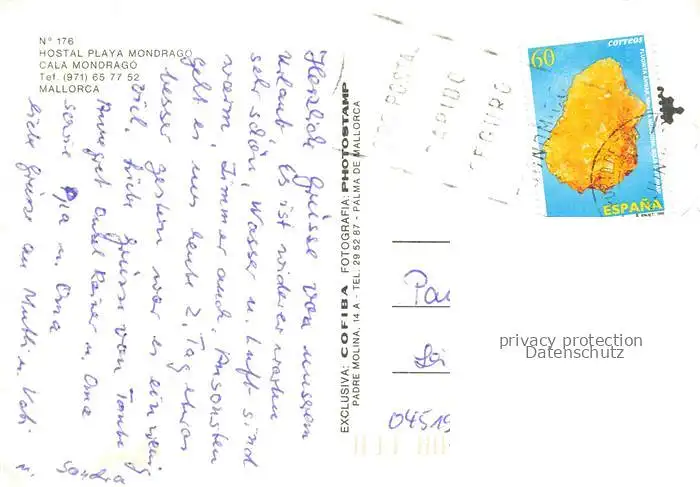 Nº 176
HOSTAL PLAYA MONDRAGO
CALA MONDRAGO
Tef. (971) 65 77 52
MALLORCA
Herzliche Grüsse von unserem
Urlaub. Es ist wider erwarten
sehr schön, Wasser u. Luft sind
warm, Zimmer auch. Ansonsten
geht es uns heute 2. Tag etwas
besser gestern war es ein wenig
viel. Liebe Grüsse von Tante
Annegret Onkel Rainer u. Oma
sowie Opa u. Oma
Liebe Grüsse an Mutti u. Vati
u. Sandra
EXCLUSIVA: COFIBA FOTOGRAFIA: PHOTOSTAMP
PADRE MOLINA, 14 A - TEL. 29 52 87 - PALMA DE MALLORCA
POSTAL
RAPIDO
SEGURO
60
correos
ESPAÑA
04519
privacy protection
Datenschutz